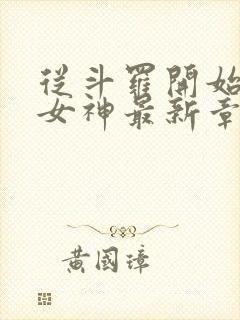 從斗羅開始
女神最新章
黃國璋